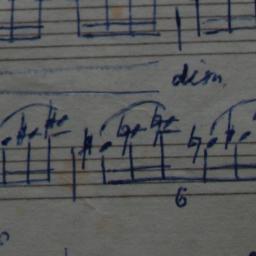 dim.
6